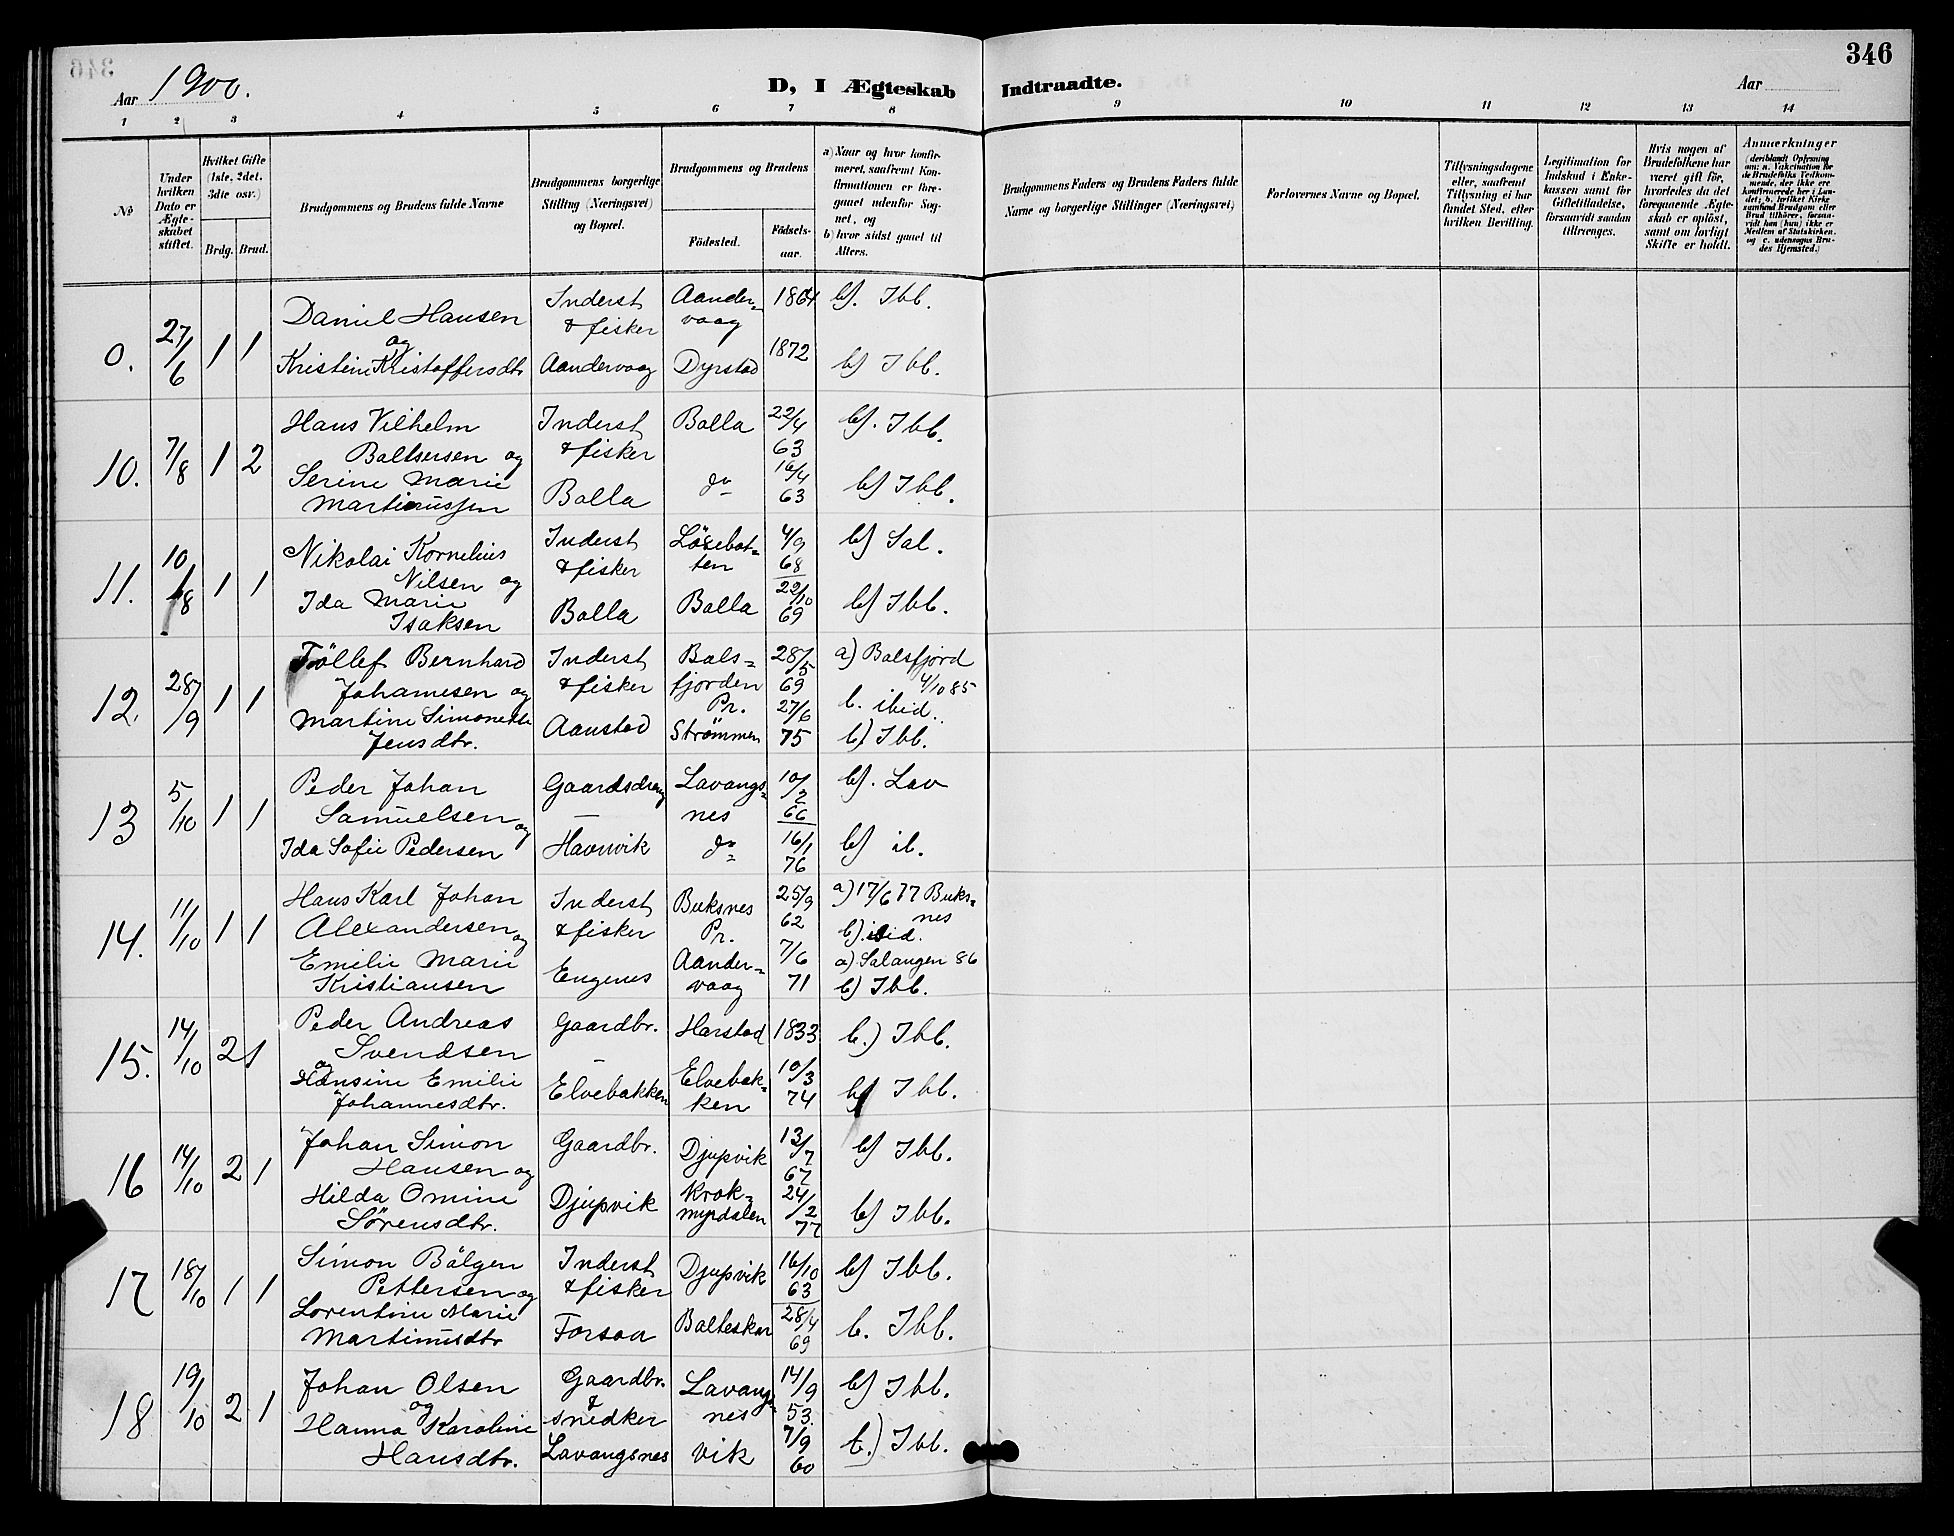 346
Aar 1900.
D, I Ægteskab Indtraadte.
Aar
1 2 3 4 5 6 7 8 9 10 11 12 13 14
№
Under hvilken Dato er Ægteskabet stiftet.
Hvilket Gifte (1ste, 2det, 3die osv.)
Brdg. Brud.
Brudgommens og Brudens fulde Navne
Brudgommens borgerlige Stilling (Næringsvei) og Bopæl.
Brudgommens og Brudens
Fødested.
Fødselsaar.
a) Naar og hvor konfirmeret, saafremt Konfirmationen er foregaaet udenfor Sognet, og
b) hvor sidst gaaet til Alters.
Brudgommens Faders og Brudens Faders fulde Navne og borgerlige Stillinger (Næringsvei)
Forlovernes Navne og Bopæl.
Tillysningsdagene eller, saafremt Tillysning ei har fundet Sted, efter hvilken Bevilling.
Legitimation for Indskud i Enkekassen samt for Giftetilladelse, forsaavidt saadan tiltrænges.
Hvis nogen af Brudefolkene har været gift før, hvorledes da det foregaaende Ægteskab er opløst, samt om lovligt Skifte er holdt.
Anmerkninger
(deriblandt Oplysning om: a. Vakcination for de Brudefolks Vedkommende, der ikke ere konfirmerede her i Landet; b. hvilket Kirkesamfund Brudgom eller Brud tilhører, forsaavidt han (hun) ikke er Medlem af Statskirken, og c. udensogns Brudes Hjemsted.)
0. 27/6 1 1
Daniel Hansen og
Kristine Kristoffersdtr
Inderst & fisker
Aandervaag
Aandervaag 1864 b). Ibb.
Dyrstad 1872 b) Ibb.
10. 7/8 1 2
Hans Vilhelm
Baltsersen og
Serine Marie
Martinussen
Inderst & fisker
Bolla
Bolla 22/4 63 b). Ibb.
do 16/4 63 b) Ibb.
11. 10/8 1 1
Nikolai Kornelius
Nilsen og
Ida Marie
Isaksen
Inderst & fisker
Bolla
Løsebotten 4/9 68 b) Sal.
Bolla 22/10 69 b) Ibb.
12. 28/9 1 1
Töllef Bernhard
Johannesen og
Martine Simonette
Jensdtr.
Inderst & fisker
Aanstad
Balsfjorden Pr. 28/5 69 a) Balsfjord 4/10 85
b. ibid..
Strømmen 27/6 75 b) Ibb.
13 5/10 1 1
Peder Johan
Samuelsen og
Ida Sofie Pedersen
Gaardsdreng
Havnvik
Lavangsnes 10/2 66 b). Lav
do 16/1 76 b) ib.
14. 11/10 1 1
Hans Karl Johan
Alexandersen og
Emilie Marie
Kristiansen
Inderst & fisker
Engenes
Buksnes Pr. 25/9 62 a) 17/6 77 Buksnes
b). ibid.
Aandervaag 7/6 71 a) Salangen 86
b) Ibb.
15. 14/10 2 1
Peder Andreas
Svendsen
og
Hansine Emilie
Johannesdtr.
Gaardbr.
Elvebakken
Harstad 1833 b.) Ibb.
Elvebakken 10/3 74 b) Ibb.
16 14/10 2 1
Johan Simon
Hansen og
Hilda Omine
Sørensdtr.
Gaardbr.
Djupvik
Djupvik 13/7 67 b) Ibb.
Krokmyrdalen 24/2 77 b) Ibb.
17 18/10 1 1
Simon Bölgen
Pettersen og
Lorentine Marie
Martinusdtr
Inderst & fisker
Forsaa
Djupvik 16/10 63 b) Ibb.
Balteskar 28/4 69 b. Ibb.
18 19/10 2 1
Johan Olsen
og
Hanna Karoline
Hansdtr.
Gaardbr. & snedker
Lavangsnes
Lavangsnes 14/9 53. b) Ibb.
Vik 7/9 60 b.) Ibb.